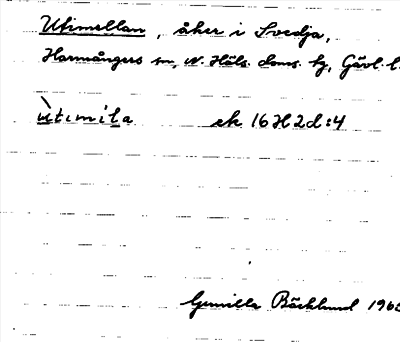 Utimellan, åker i Svedja,
Harmångers sn, N. Häls. doms. hg, Gävl. l.
ùtımı'la ek 16H2d:4
Gunilla Bäcklund 196